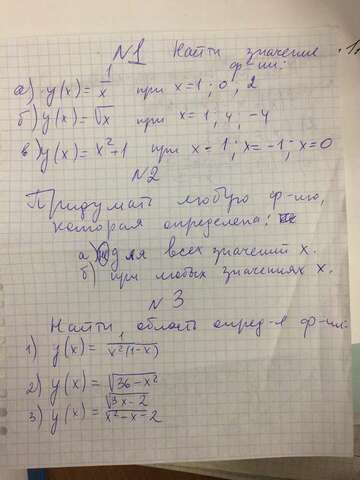 №1 Найти значение
ф-ии:
а) y(x) = 1/x при x=1; 0; 2
б) y(x) = √x при x=1; 4; -4
в) y(x) = x²+1 при x-1; x=-1; x=0
№2
Придумать любую ф-ию,
которая определена:
а) для всех значений x.
б) при любых значениях x.
№3
Найти область опред-я ф-ии:
1) y(x) = 1/x²(1-x)
2) y(x) = √36-x²
3) y(x) = √3x-2/x²-x-2